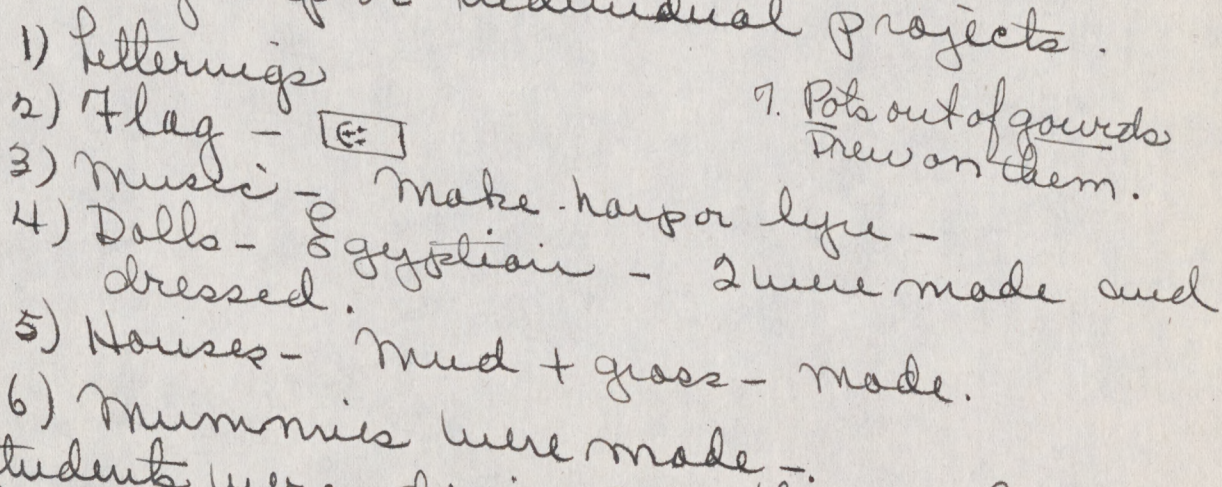 individual projects.
1) Letterings
2) Flag -
3) Music - Make harp or lyre -
4) Dolls - Egyptian - 2 were made and
dressed.
5) Houses - Mud + grass - made.
6) Mummies were made -.
7. Pots out of gourds
Drew on them.
students were